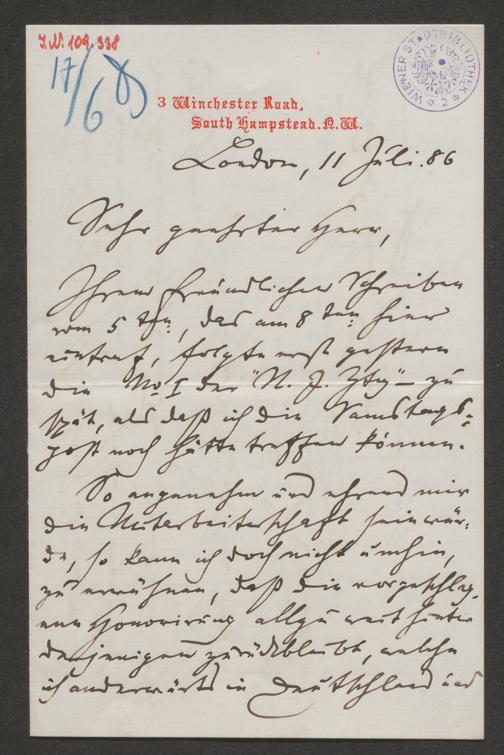 I.N. 109.338
17/6 85
WIENER STADTBIBLIOTHEK * 2 *
3 Winchester Road,
South Hampstead. N.W.
London, 11 Juli. 86
Sehr geehrter Herr,
Ihrem freundlichen Schreiben
vom 5ten, das am 8ten hier
eintraf, folgte erst gestern
die No I der "N. J. Ztg" – zu
spät, als daß ich die Samstags-
post noch hätte treffen können.
So angenehm und ehrend mir
die Mitarbeiterschaft sein wür-
de, so kann ich doch nicht umhin,
zu erwähnen, daß die vorgeschlag-
ene Honorirung allzu weit hinter
derjenigen zurückbleibt, welche
ich anderwärts in Deutschland und